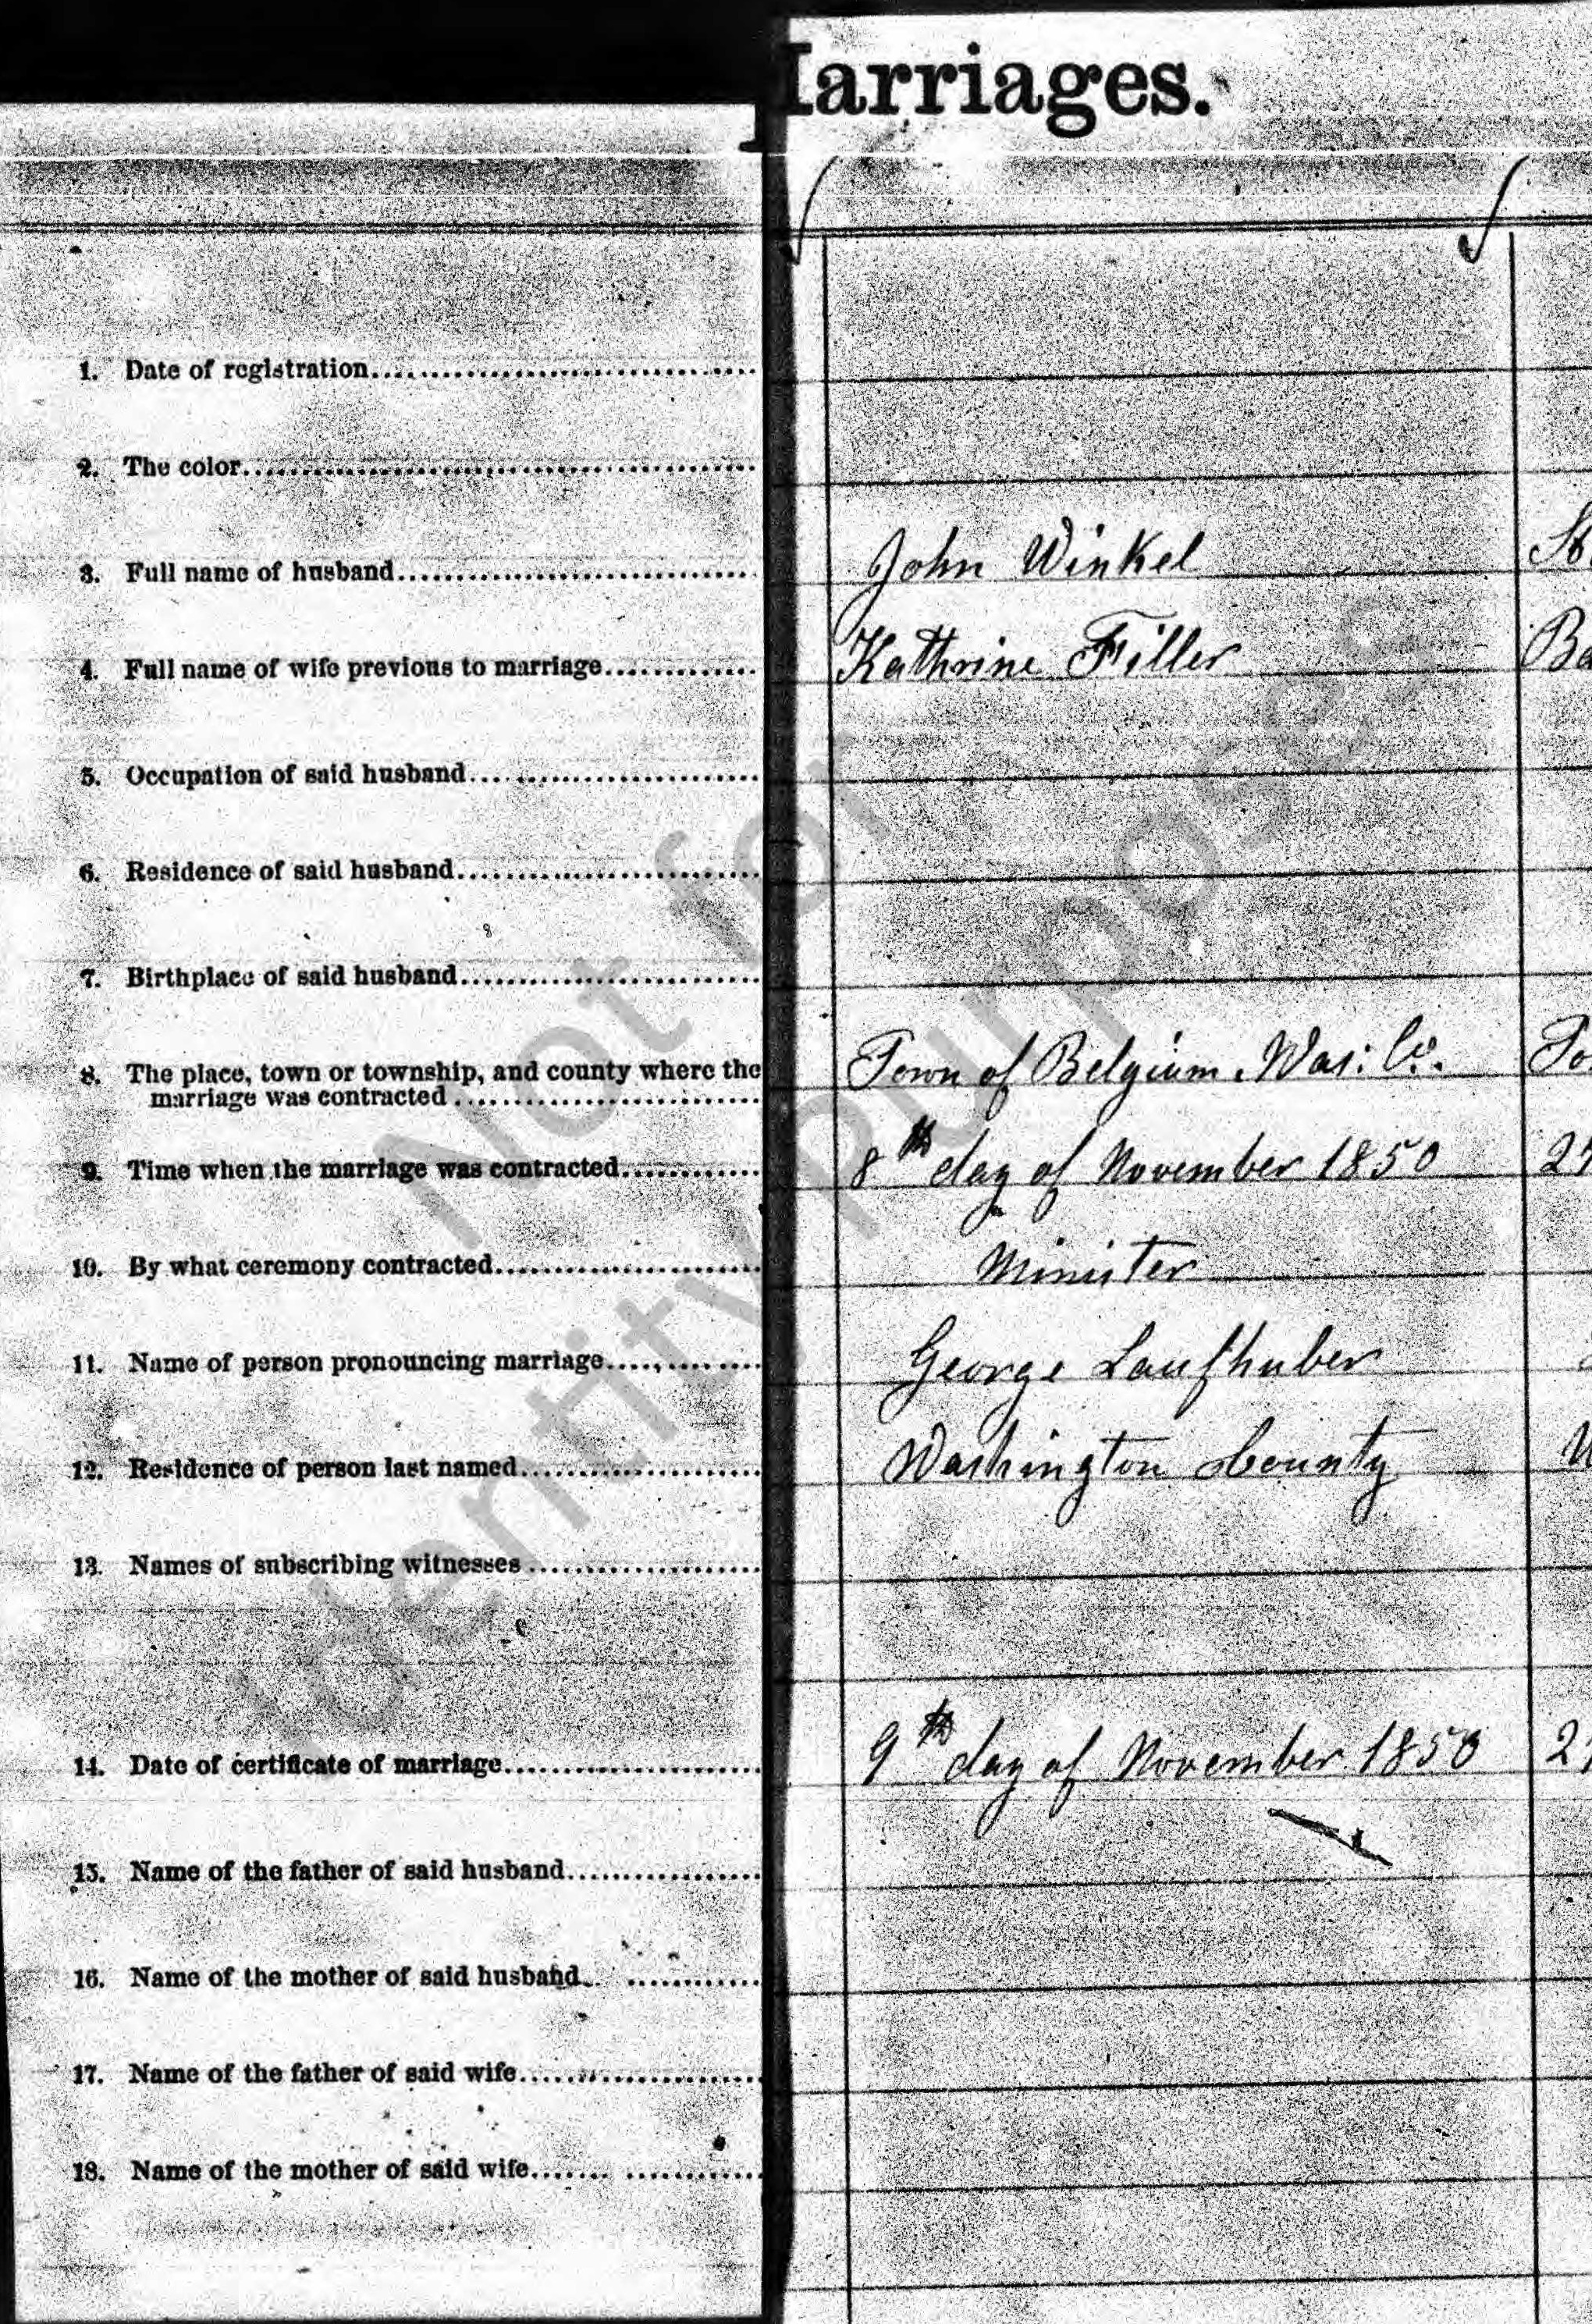 Marriages.
1. Date of registration
2. The color
3. Full name of husband John Winkel
4. Full name of wife previous to marriage Kathrine Filler
5. Occupation of said husband
6. Residence of said husband
7. Birthplace of said husband
8. The place, town or township, and county where the
marriage was contracted Town of Belgium Was: Co.
9. Time when the marriage was contracted 8th day of November 1850
10. By what ceremony contracted Minister
11. Name of person pronouncing marriage George Laufhuber
12. Residence of person last named Washington County
13. Names of subscribing witnesses
14. Date of certificate of marriage 9th day of November 1850
15. Name of the father of said husband
16. Name of the mother of said husband
17. Name of the father of said wife
18. Name of the mother of said wife
Not for
identity purposes